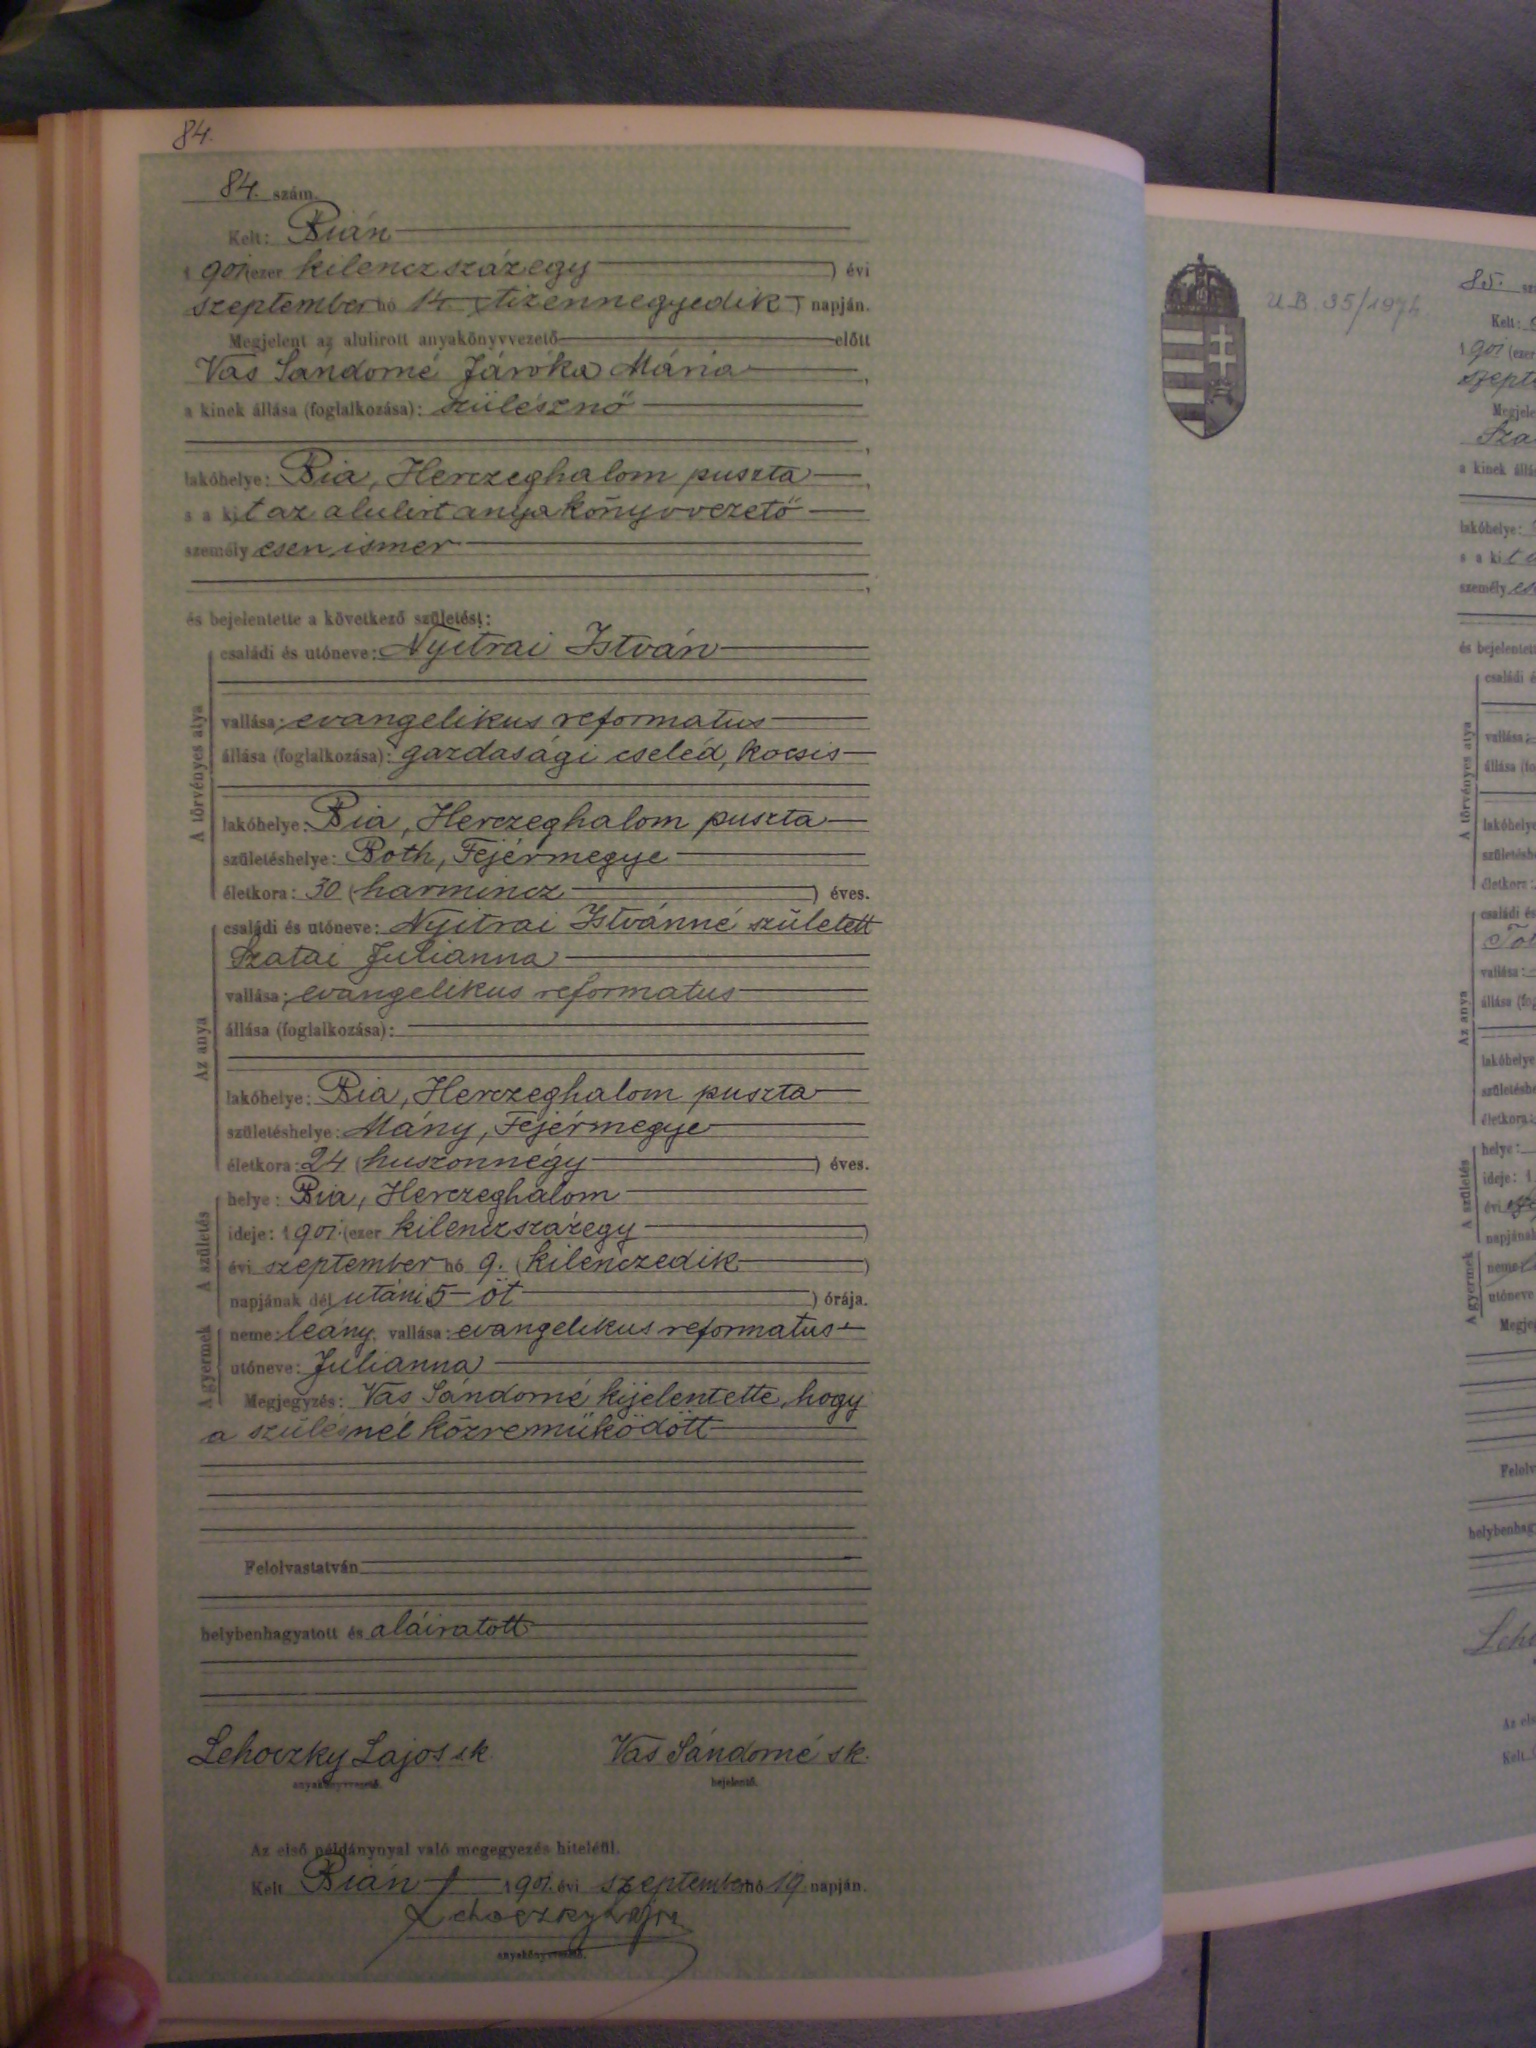 84.
84. szám.
Kelt: Bián
1901 (ezer kilenczszázegy) évi
szeptember hó 14 (tizennegyedik) napján.
Megjelent az alulirott anyakönyvvezető előtt
Vas Sándorné Járóka Mária,
a kinek állása (foglalkozása): szülésznő
,
lakóhelye: Bia, Herczeghalom puszta,
s a kit az alulirt anyakönyvvezető
személyesen ismer
,
és bejelentette a következő születést:
A törvényes atya
családi és utóneve: Nyitrai István
vallása: evangelikus reformatus
állása (foglalkozása): gazdasági cseléd, kocsis
lakóhelye: Bia, Herczeghalom puszta
születéshelye: Both, Fejérmegye
életkora: 30 (harmincz) éves.
Az anya
családi és utóneve: Nyitrai Istvánné született
Szatai Julianna
vallása: evangelikus reformatus
állása (foglalkozása):
lakóhelye: Bia, Herczeghalom puszta
születéshelye: Mány, Fejérmegye
életkora: 24 (huszonnégy) éves.
A születés
helye: Bia, Herczeghalom
ideje: 1901. (ezer kilenczszázegy)
évi szeptember hó 9. (kilenczedik)
napjának dél utáni 5 öt) órája.
A gyermek
neme: leány, vallása: evangelikus reformatus
utóneve: Julianna
Megjegyzés: Vas Sándorné kijelentette, hogy
a szülésnél közreműködött
Felolvastatván
helybenhagyatott és aláiratott
Lehoczky Lajos sk.
anyakönyvvezető.
Vas Sándorné sk.
bejelentő.
Az első példánynyal való megegyezés hiteléűl.
Kelt Bián 1901. évi szeptember hó 19 napján.
Lehoczky Lajos
anyakönyvvezető.
U.B. 35/1974.
85. sz
Kelt:
1901 (ezer
szept
Megjele
Sza
a kinek állá
lakóhelye:
s a kit a
személy es
és bejelentett
A törvényes atya
családi é
vallása:
állása (fo
lakóhelye
születéshe
életkora:
Az anya
családi és
vallása:
állása (fog
lakóhelye
születéshe
életkora:
A születés
helye:
ideje: 1
évi
napjának
A gyermek
neme:
utóneve
Megje
Felolv
helybenhag
Leho
Az els
Kelt